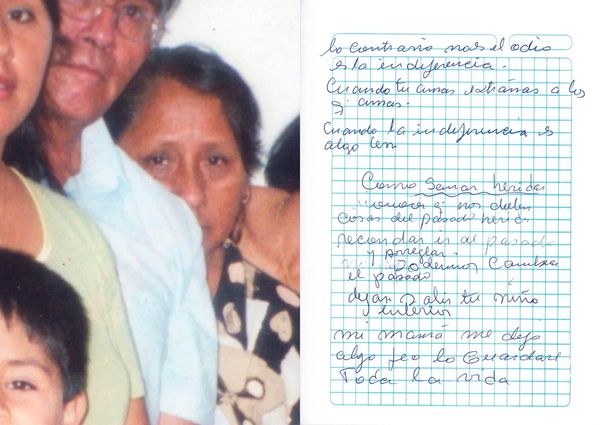 lo contrario no es el odio
es la indiferencia.
Cuando tu amas extrañas a los
q amas.
Cuando la indiferencia es
algo len
Como sanar heridas
q nos duelen
cosas del pasado heric
recordar ir al pasado
y arreglar.
Podemos Cambiar
el pasado
dejar salir tu niño
interior
mi mamá me dejo
algo feo lo Guardare
Toda la vida